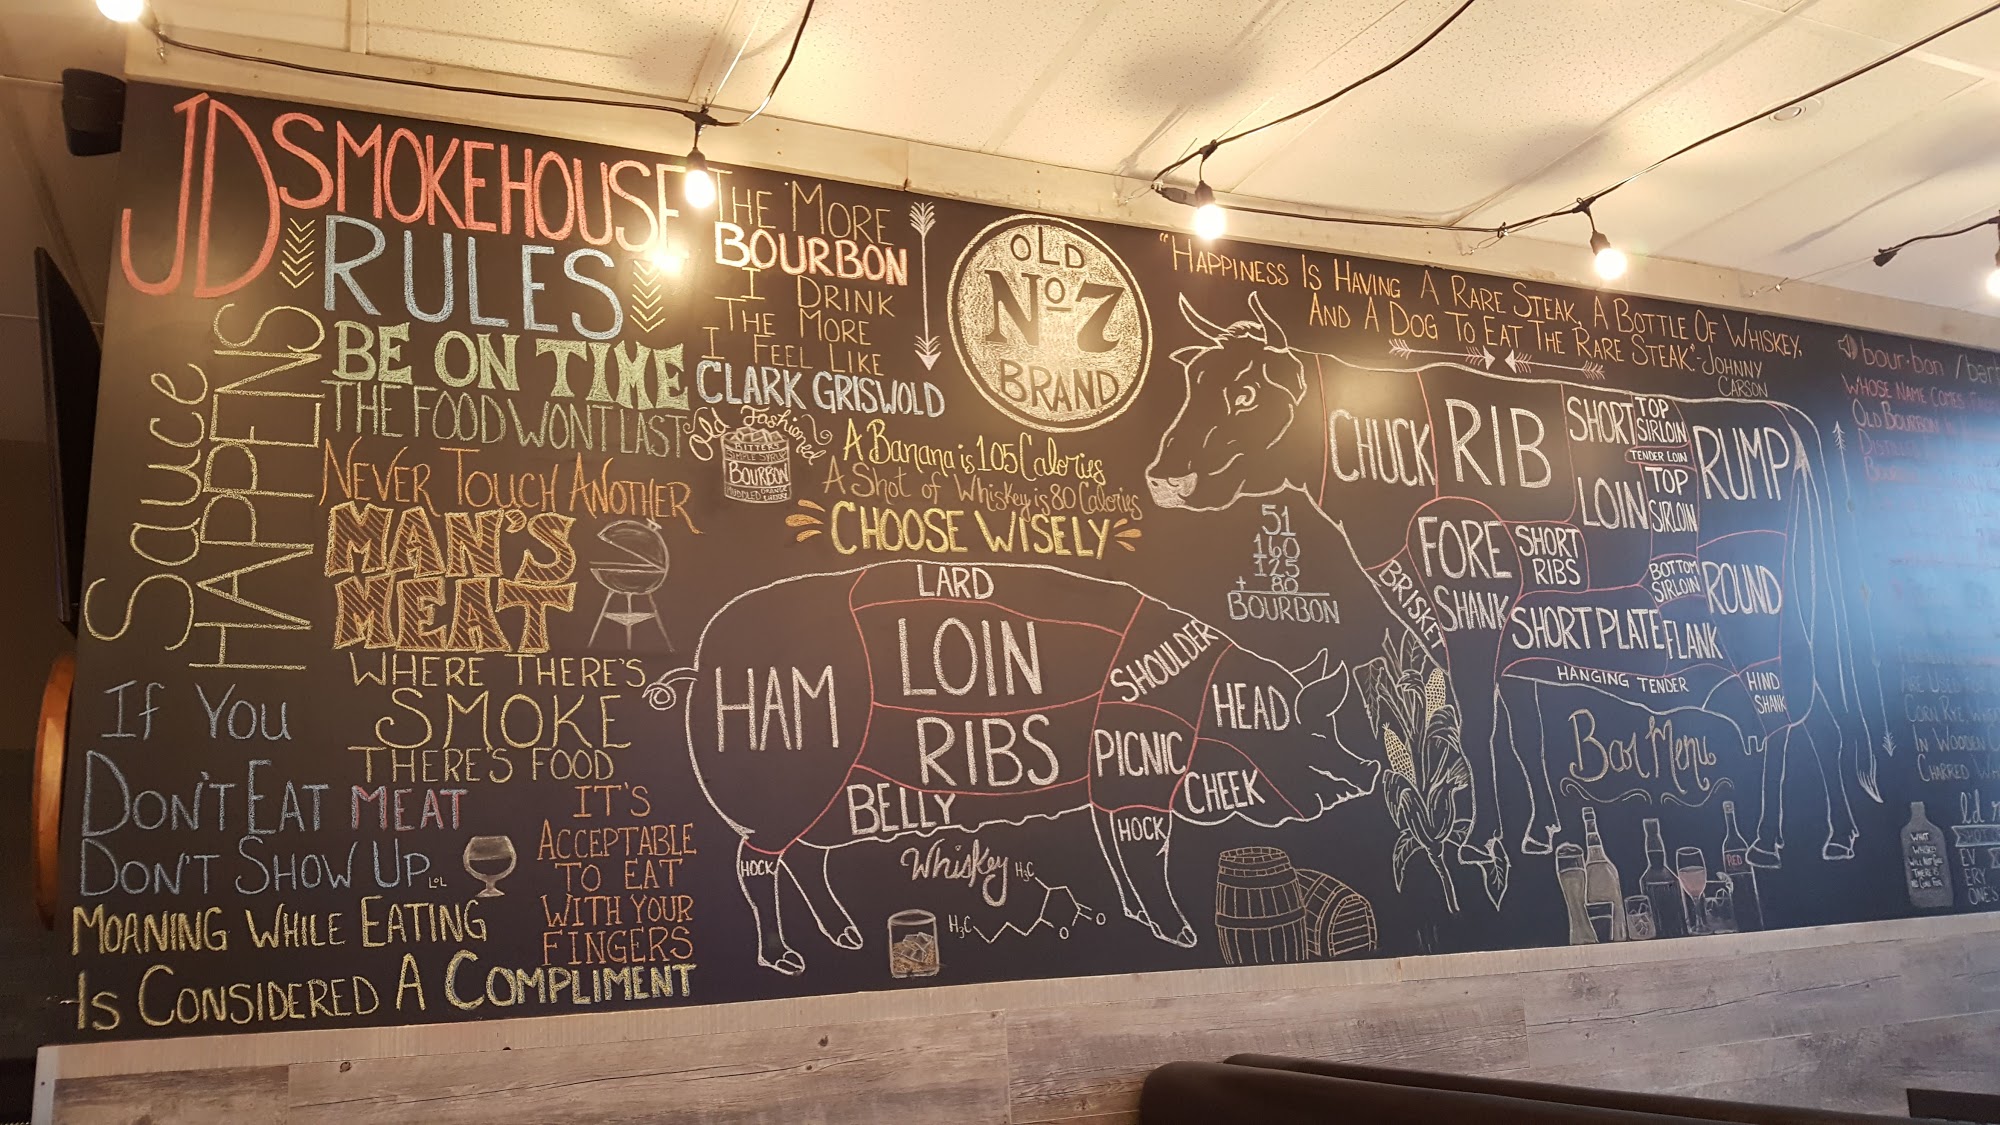 JD SMOKEHOUSE
RULES
BE ON TIME
THE FOOD WONT LAST
Sauce
HAPPENS
NEVER TOUCH ANOTHER
MAN'S
MEAT
WHERE THERE'S
SMOKE
THERE'S FOOD
If You
DON'T EAT MEAT
DON'T SHOW UP LOL
IT'S
ACCEPTABLE
TO EAT
WITH YOUR
FINGERS
MOANING WHILE EATING
IS CONSIDERED A COMPLIMENT
THE MORE
BOURBON
I DRINK
THE MORE
I FEEL LIKE
CLARK GRISWOLD
Old Fashioned
BITTERS
SIMPLE SYRUP
BOURBON
MUDDLED ORANGE
& CHERRY
OLD
No 7
BRAND
A Banana is 105 Calories
A Shot of Whiskey is 80 Calories
CHOOSE WISELY
LARD
LOIN
HAM
RIBS
BELLY
SHOULDER
PICNIC
HEAD
CHEEK
HOCK
HOCK
Whiskey
H3C
H3C
O
O
"HAPPINESS IS HAVING A RARE STEAK, A BOTTLE OF WHISKEY,
AND A DOG TO EAT THE RARE STEAK." -JOHNNY
CARSON
51
160
125
+ 80
BOURBON
CHUCK
RIB
SHORT
LOIN
TOP
SIRLOIN
TENDER LOIN
TOP
SIRLOIN
RUMP
BRISKET
FORE
SHANK
SHORT
RIBS
BOTTOM
SIRLOIN
ROUND
SHORT PLATE
FLANK
HANGING TENDER
HIND
SHANK
Bar Menu
RED
bour·bon
WHOSE NAME COMES
OLD BOURBON
ARE USED
CORN, RYE,
IN WOODEN
CHARRED
WHAT
WHISKEY
WILL NOT
THERE IS
NO CURE FOR
I'd
EV
ERY
ONE'S